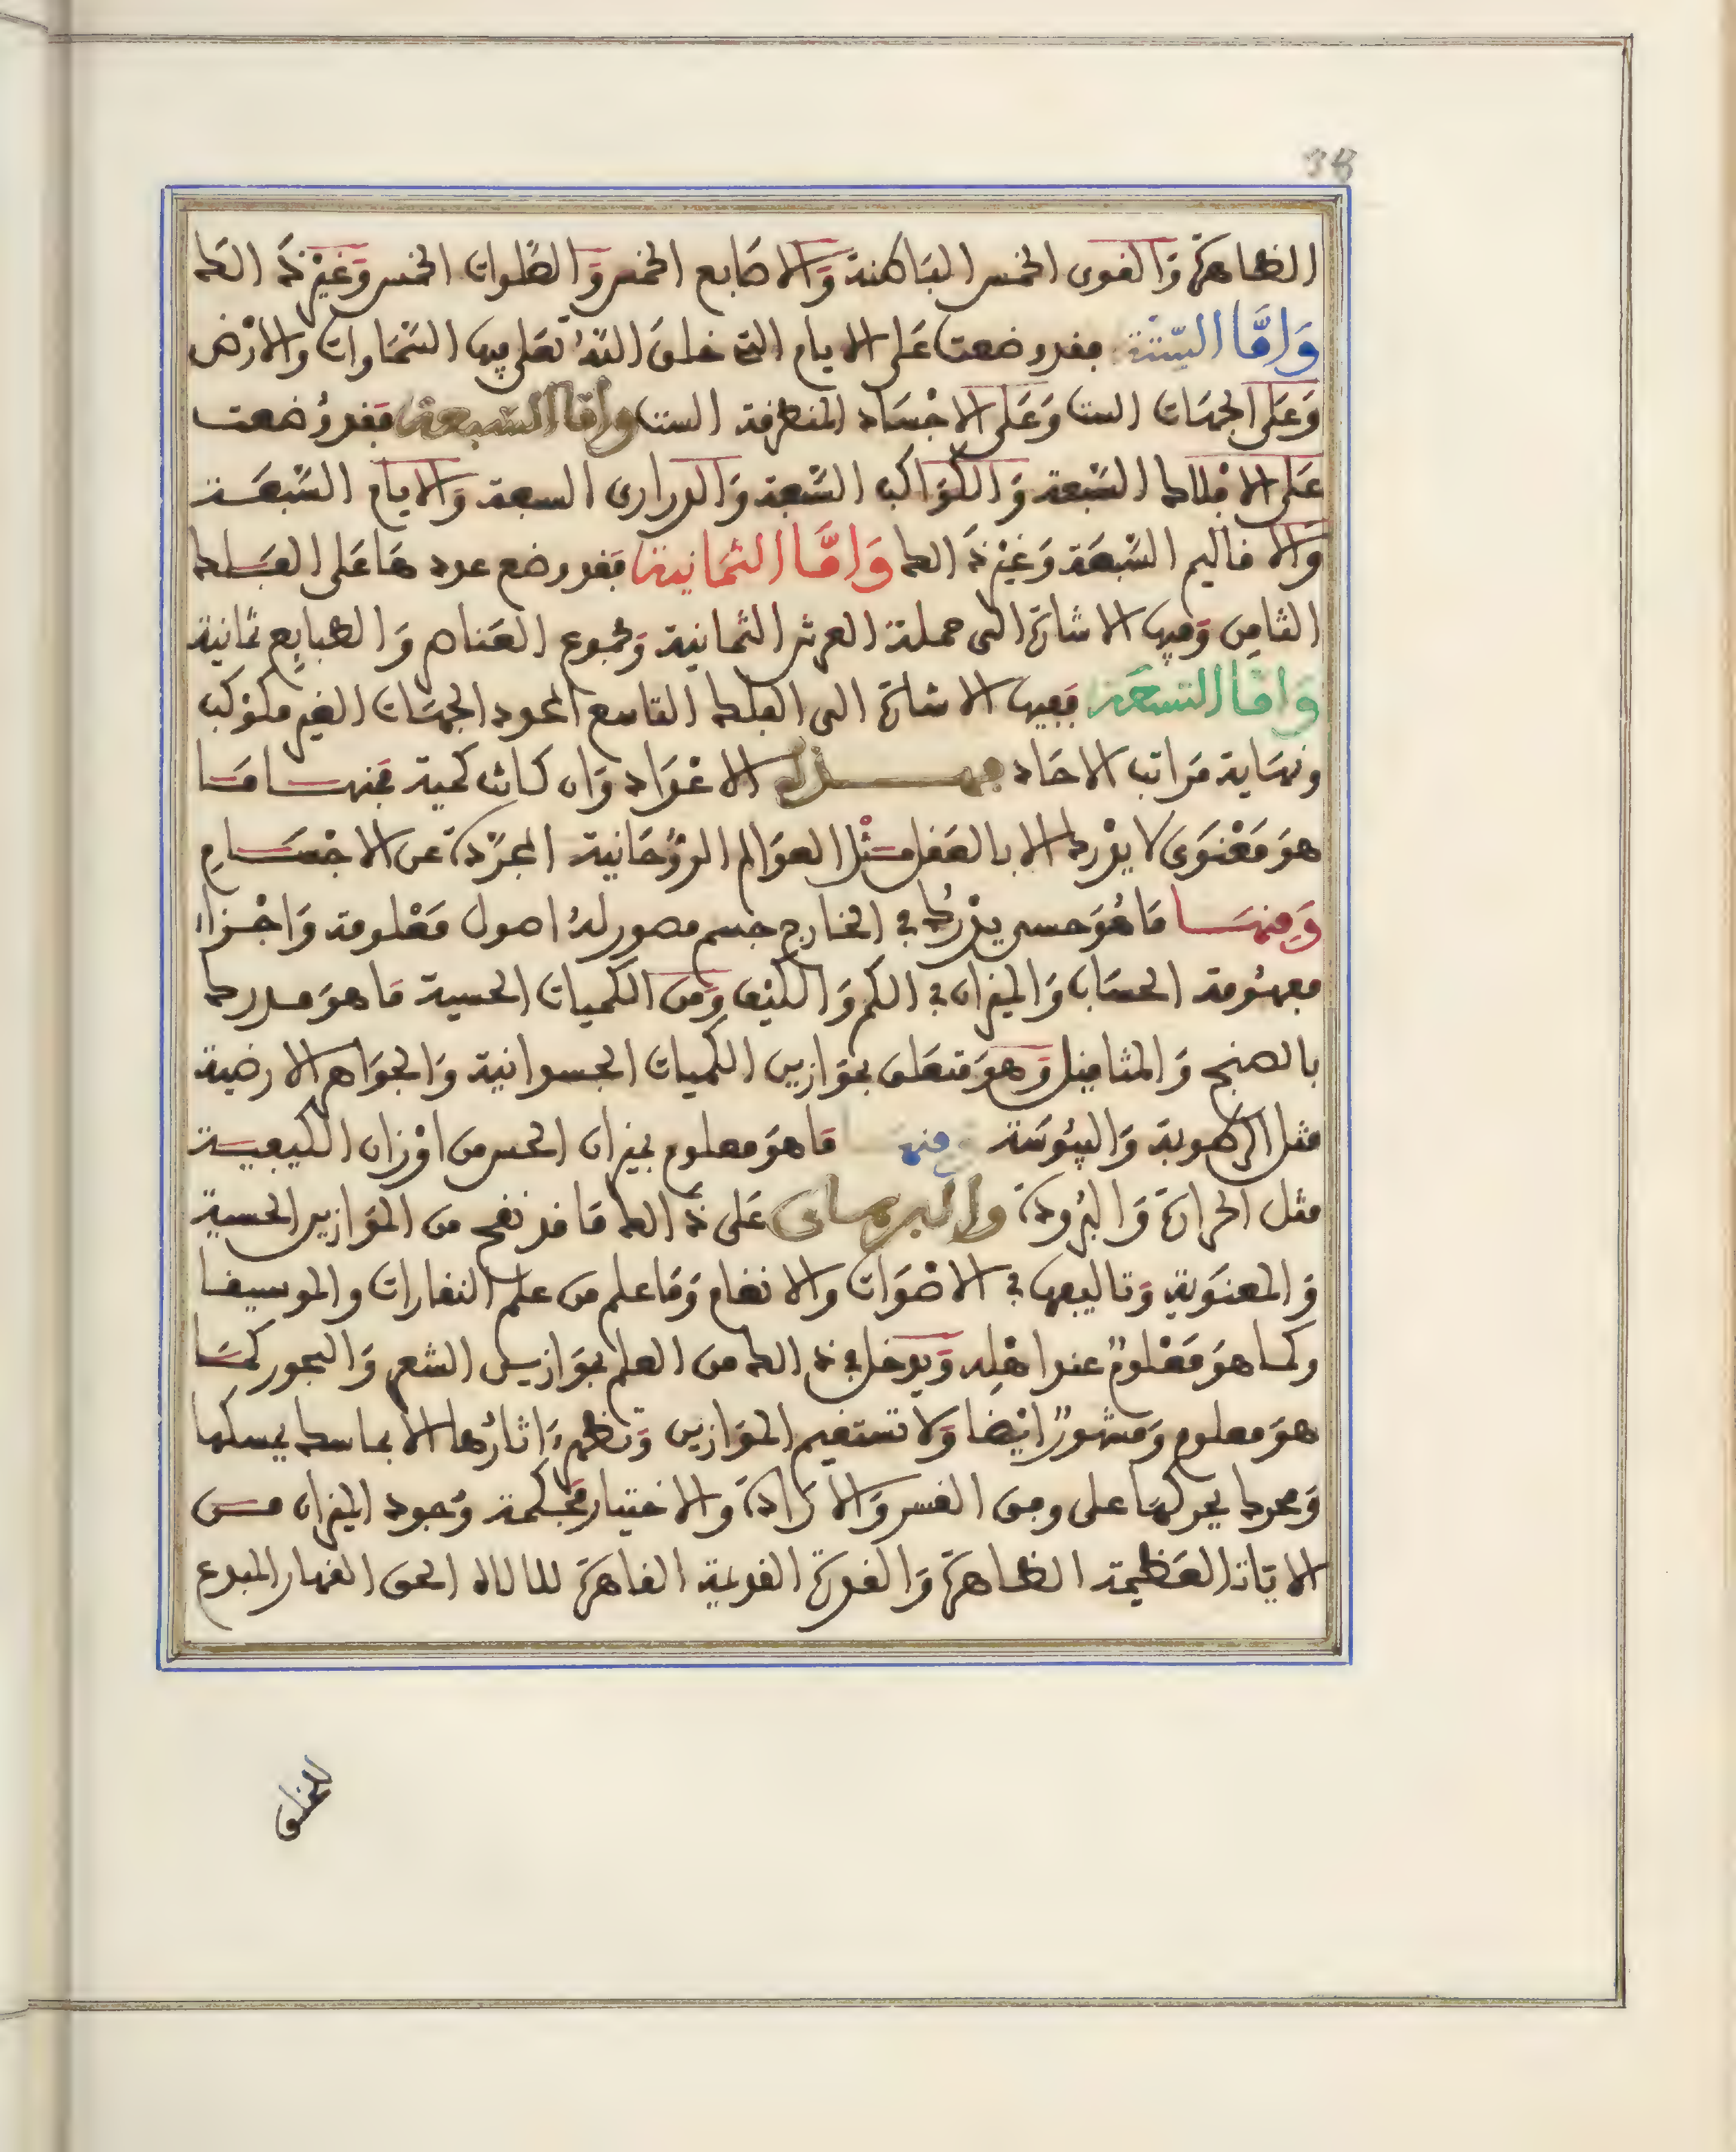 38
الظاهرة والقوى الخمس الباطنة والاصابع الخمس والصلوات الخمس وغير ذالك
واما الستة فقد وضعت على الايام التى خلق الله تعلى فيها السماوات والارض
وعلى الجهات الست وعلى الاجساد المنطرقة الست واما السبعة فقد وضعت
على الافلاك السبعة والكواكب السبعة والدرارى السبعة والايام السبعة
والاقاليم السبعة وغير ذالك واما الثمانية فقد وضع عددها على الفلك
الثامن وفيها الاشارة الى حملة العرش الثمانية ومجموع العناصر والطبايع ثمانية
واما التسعة ففيها الاشارة الى الفلك التاسع المحدد الجهات الغير مكوكب
ونهاية مراتب الاحاد فهذه الاعداد وان كانت كمية فمنها ما
هو معنوى لا يدرك الا بالعقل مثل العوالم الروحانية المجردة عن الاجسام
ومنها ما هو حسى يدرك في الخارج جسم مصور له اصول معلومة واجزاء
مفهومة الحساب والميزان في الكم والكيف ومن الكميات الحسية ما هو مدرك
بالصنج والمثاقيل وهو متعلق بموازين الكميات الجسمانية والجواهر الارضية
مثل الرطوبة واليبوسة ومنها ما هو معلوم بميزان الحس من اوزان الكيفية
مثل الحرارة والبرودة والبرهان على ذالك ما قد نفح من الموازين الحسية
والمعنوية وتاليفها في الاصوات والانغام وما علم من علم النقارات والموسيقا
وكما هو معلوم عند اهله ويدخل في ذالك من العلم بموازين الشعر والبحور كما
هو معلوم ومشهور ايضا ولا تستقيم الموازين وتظهر اثارها الا بماسك يمسكها
ومحرك يحركها على وجه القسر والارادة والاختيار فحكمة وجود الميزان من
الايات العظيمة الظاهرة والقدرة القديمة القاهرة للالاه الحق القهار المبدع
للخلق